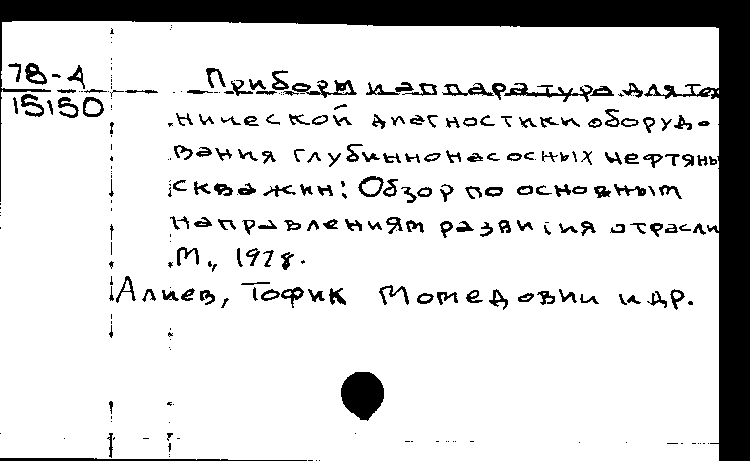 78-4
15150
Приборы и аппаратура для тех
нической диагностики оборудо
вания глубиннонасосных нефтяны
скважин: Обзор по основным
направлениям развития отрасли
М., 1978.
Алиев, Тофик Мамедович и др.